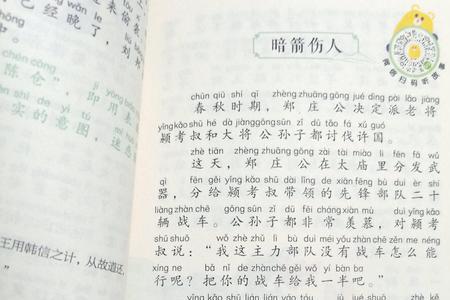 来留
wǎn le
已经晚了，刘邦
chén cāng
陈仓"，即用表
shí de yì tú mí
实的意图，迷惑
王用韩信之计，从故道还
暗箭伤人
微信扫码听故事
chūn qiū shí qī zhèng zhuāng gōng jué dìng pài lǎo jiàng
春秋时期，郑庄公决定派老将
yǐng kǎo shū hé dà jiàng gōng sūn zǐ dū tǎo fá xǔ guó
颖考叔和大将公孙子都讨伐许国。
zhè tiān zhèng zhuāng gōng zài tài miào lǐ fēn fā wǔ
这天，郑庄公在太庙里分发武
qì fēn gěi yǐng kǎo shū dài lǐng de xiān fēng bù duì èr shí
器，分给颖考叔带领的先锋部队二十
liàng zhàn chē gōng sūn zǐ dū fēi cháng xiàn mù duì yǐng kǎo
辆战车。公孙子都非常羡慕，对颖考
shū shuō wǒ zhè zhǔ lì bù duì méi yǒu zhàn chē zěn me néng
叔说："我这主力部队没有战车怎么能
xíng ne bǎ nǐ de zhàn chē gěi wǒ yí bàn ba
行呢？把你的战车给我一半吧。"